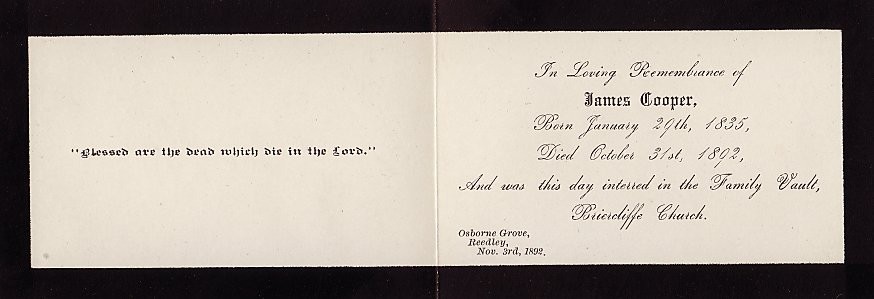 "Blessed are the dead which die in the Lord."
In Loving Remembrance of
James Cooper,
Born January 29th, 1835,
Died October 31st, 1892,
And was this day interred in the Family Vault,
Briercliffe Church.
Osborne Grove,
Reedley,
Nov. 3rd, 1892.